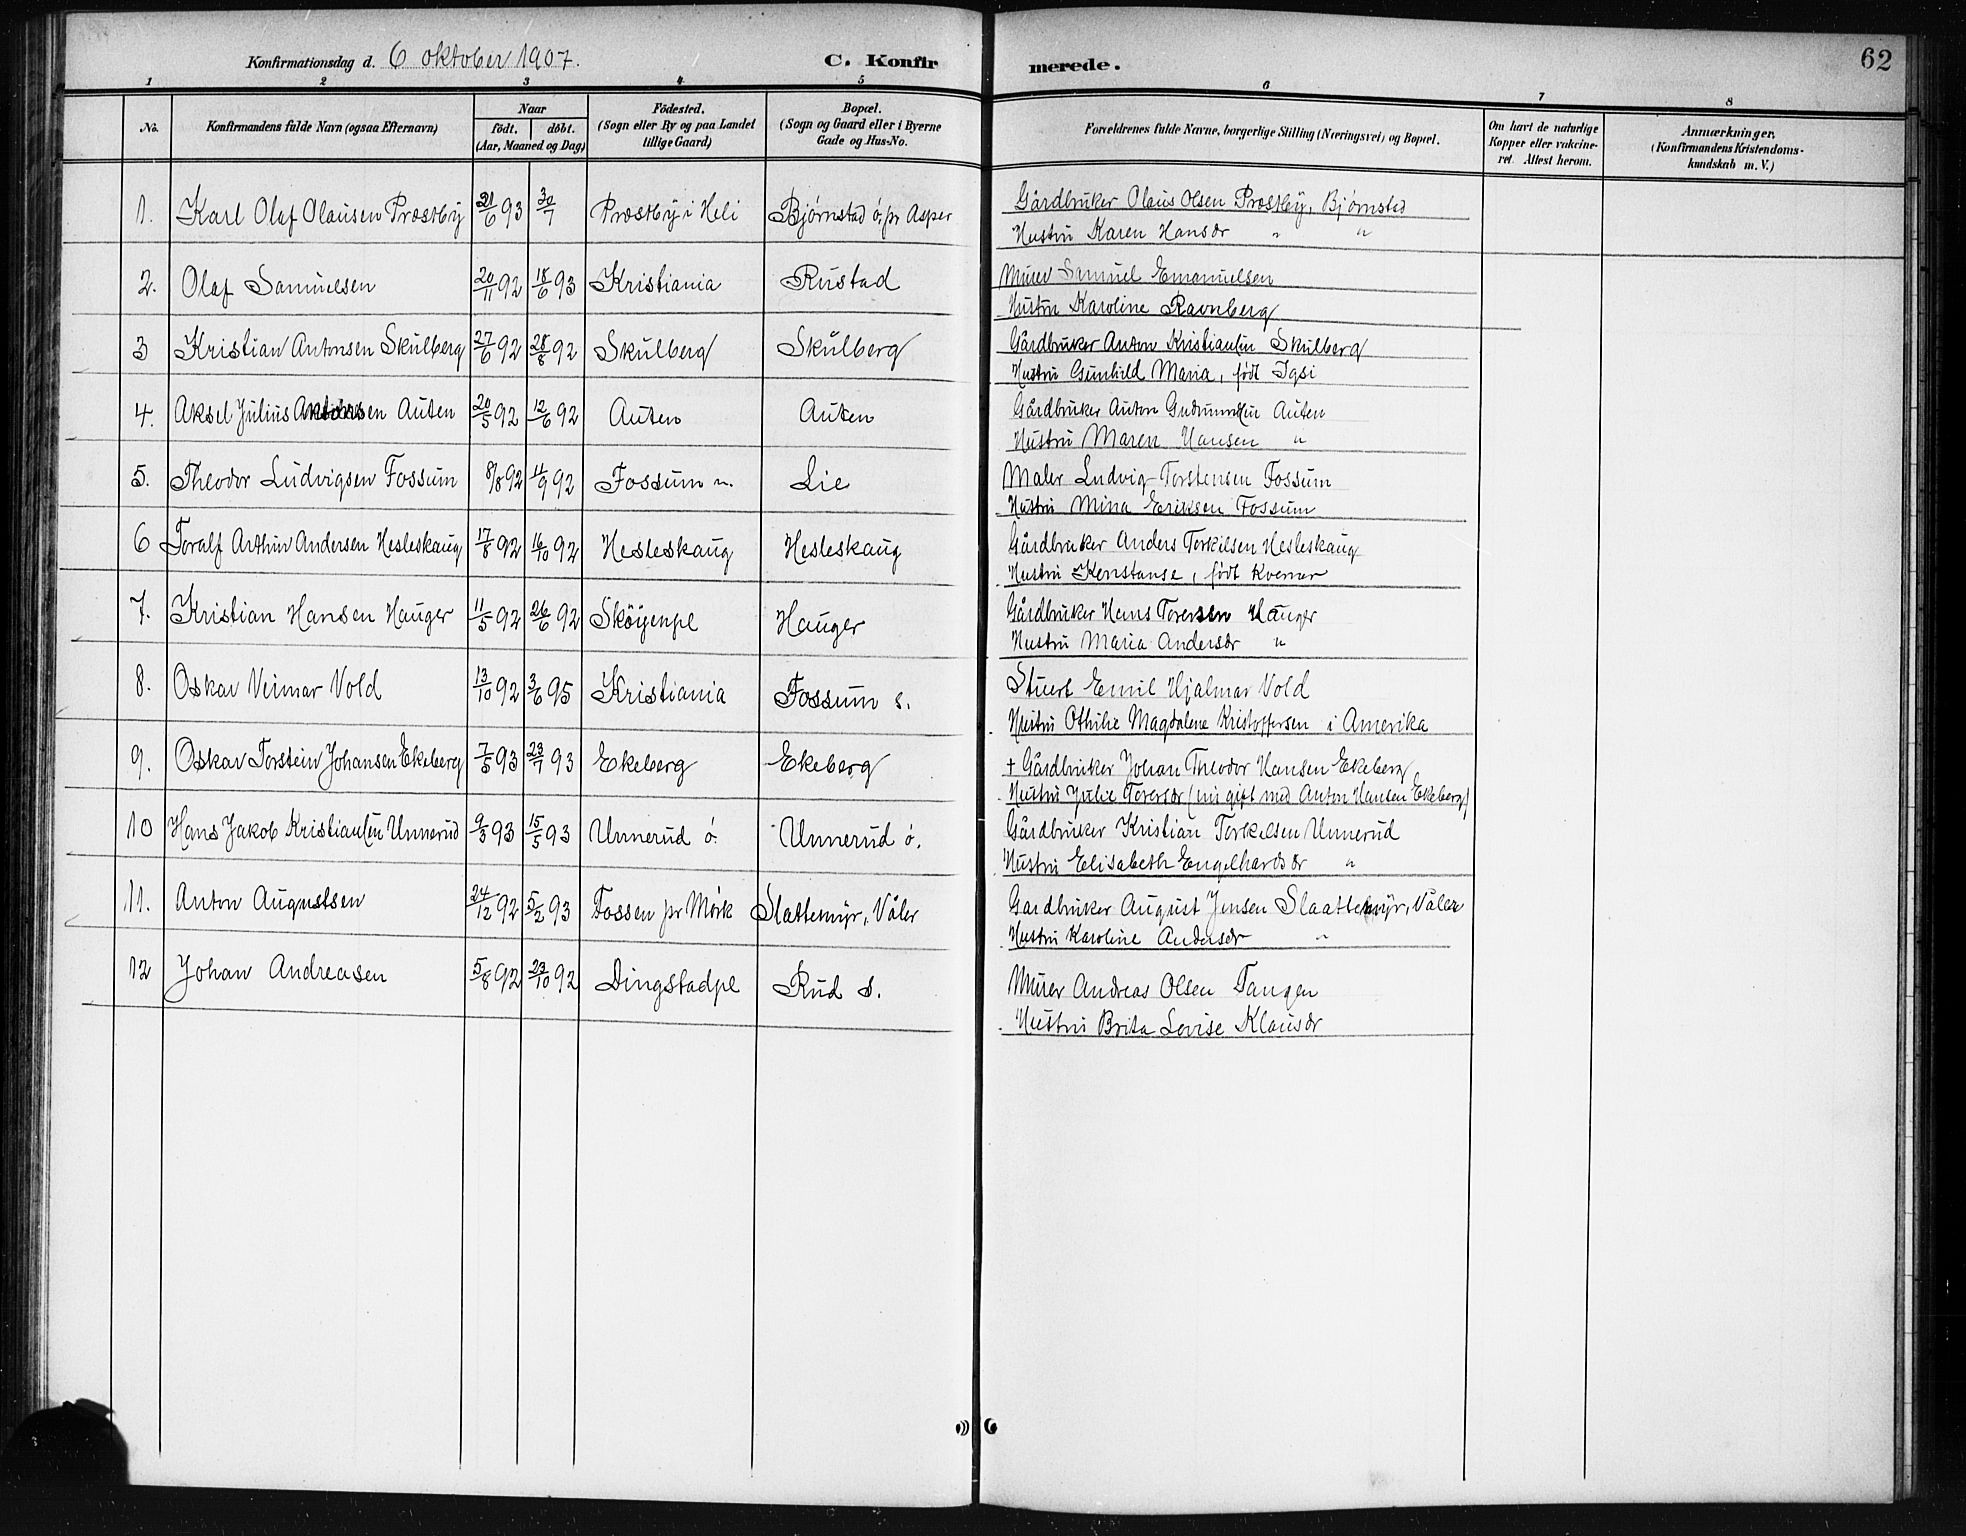 Konfirmationsdag d. 6 oktober 1907. C. Konfirmerede. 62
1 2 3 4 5 6 7 8
No. Konfirmandens fulde Navn (ogsaa Efternavn) Naar födt. döbt. (Aar, Maaned og Dag) Födested. (Sogn eller By og paa Landet tillige Gaard) Bopæl. (Sogn og Gaard eller i Byerne Gade og Hus-No. Forældrenes fulde Navne, borgerlige Stilling (Næringsvei) og Bopæl. Om havt de naturlige Kopper eller vakcineret. Attest herom. Anmærkninger. (Konfirmandens Kristendomskundskab m. V.)
1. Karl Olaf Olausen Præstby 21/6 93 30/7 Præstby i Heli Bjørnstad ö. pr Asper Gårdbruker Olaus Olsen Præstby, Bjørnstad
Hustru Karen Hansdr " "
2. Olaf Samuelsen 20/11 92 18/6 93 Kristiania Rustad Murer Samuel Emanuelsen
Hustru Karoline Ravnberg
3 Kristian Antonsen Skulberg 27/6 92 28/8 92 Skulberg Skulberg Gårdbruker Anton Kristiansen Skulberg
Hustru Gunhild Maria, født Igsi
4. Aksel Julius Antonsen Auten 20/5 92 12/6 92 Auten Auten Gårdbruker Anton Gudmundsen Auten
Hustru Maren Hansen "
5. Theodor Ludvigsen Fossum 8/8 92 11/9 92 Fossum n. Lie Maler Ludvig Torstensen Fossum
Hustru Mina Eriksen Fossum
6 Toralf Arthur Andersen Hesleskaug 17/8 92 16/10 92 Hesleskaug Hesleskaug Gårdbruker Anders Torkilsen Hesleskaug
Hustru Konstanse, født Kverner
7. Kristian Hansen Hauger 11/5 92 26/6 92 Sköyenpl Hauger Gårdbruker Hans Toresen Hauger
Hustru Maria Andersdr "
8. Oskar Veimar Vold 13/10 92 3/6 95 Kristiania Fossum s. Stuert Emil Hjalmar Vold
Hustru Othilie Magdalene Kristoffersen i Amerika
9. Oskar Torstein Johansen Ekeberg 7/5 93 23/7 93 Ekeberg Ekeberg + Gårdbruker Johan Theodor Hansen Ekeberg
Hustru Julie Toresdr (nu gift med Anton Hansen Ekeberg)
10 Hans Jakob Kristiansen Unnerud 9/3 93 15/5 93 Unnerud ö. Unnerud ö. Gårdbruker Kristian Torkelsen Unnerud
Hustru Elisabeth Engelhardsdr "
11. Anton Augustsen 24/12 92 5/2 93 Fossen pr Mörk Slattemyr, Våler Gardbruker August Jensen Slaattemyr, Våler
Hustru Karoline Andersdr "
12 Johan Andreasen 5/8 92 23/10 92 Dingstadpl Rud s. Murer Andreas Olsen Tangen
Hustru Brita Lovise Klausdr